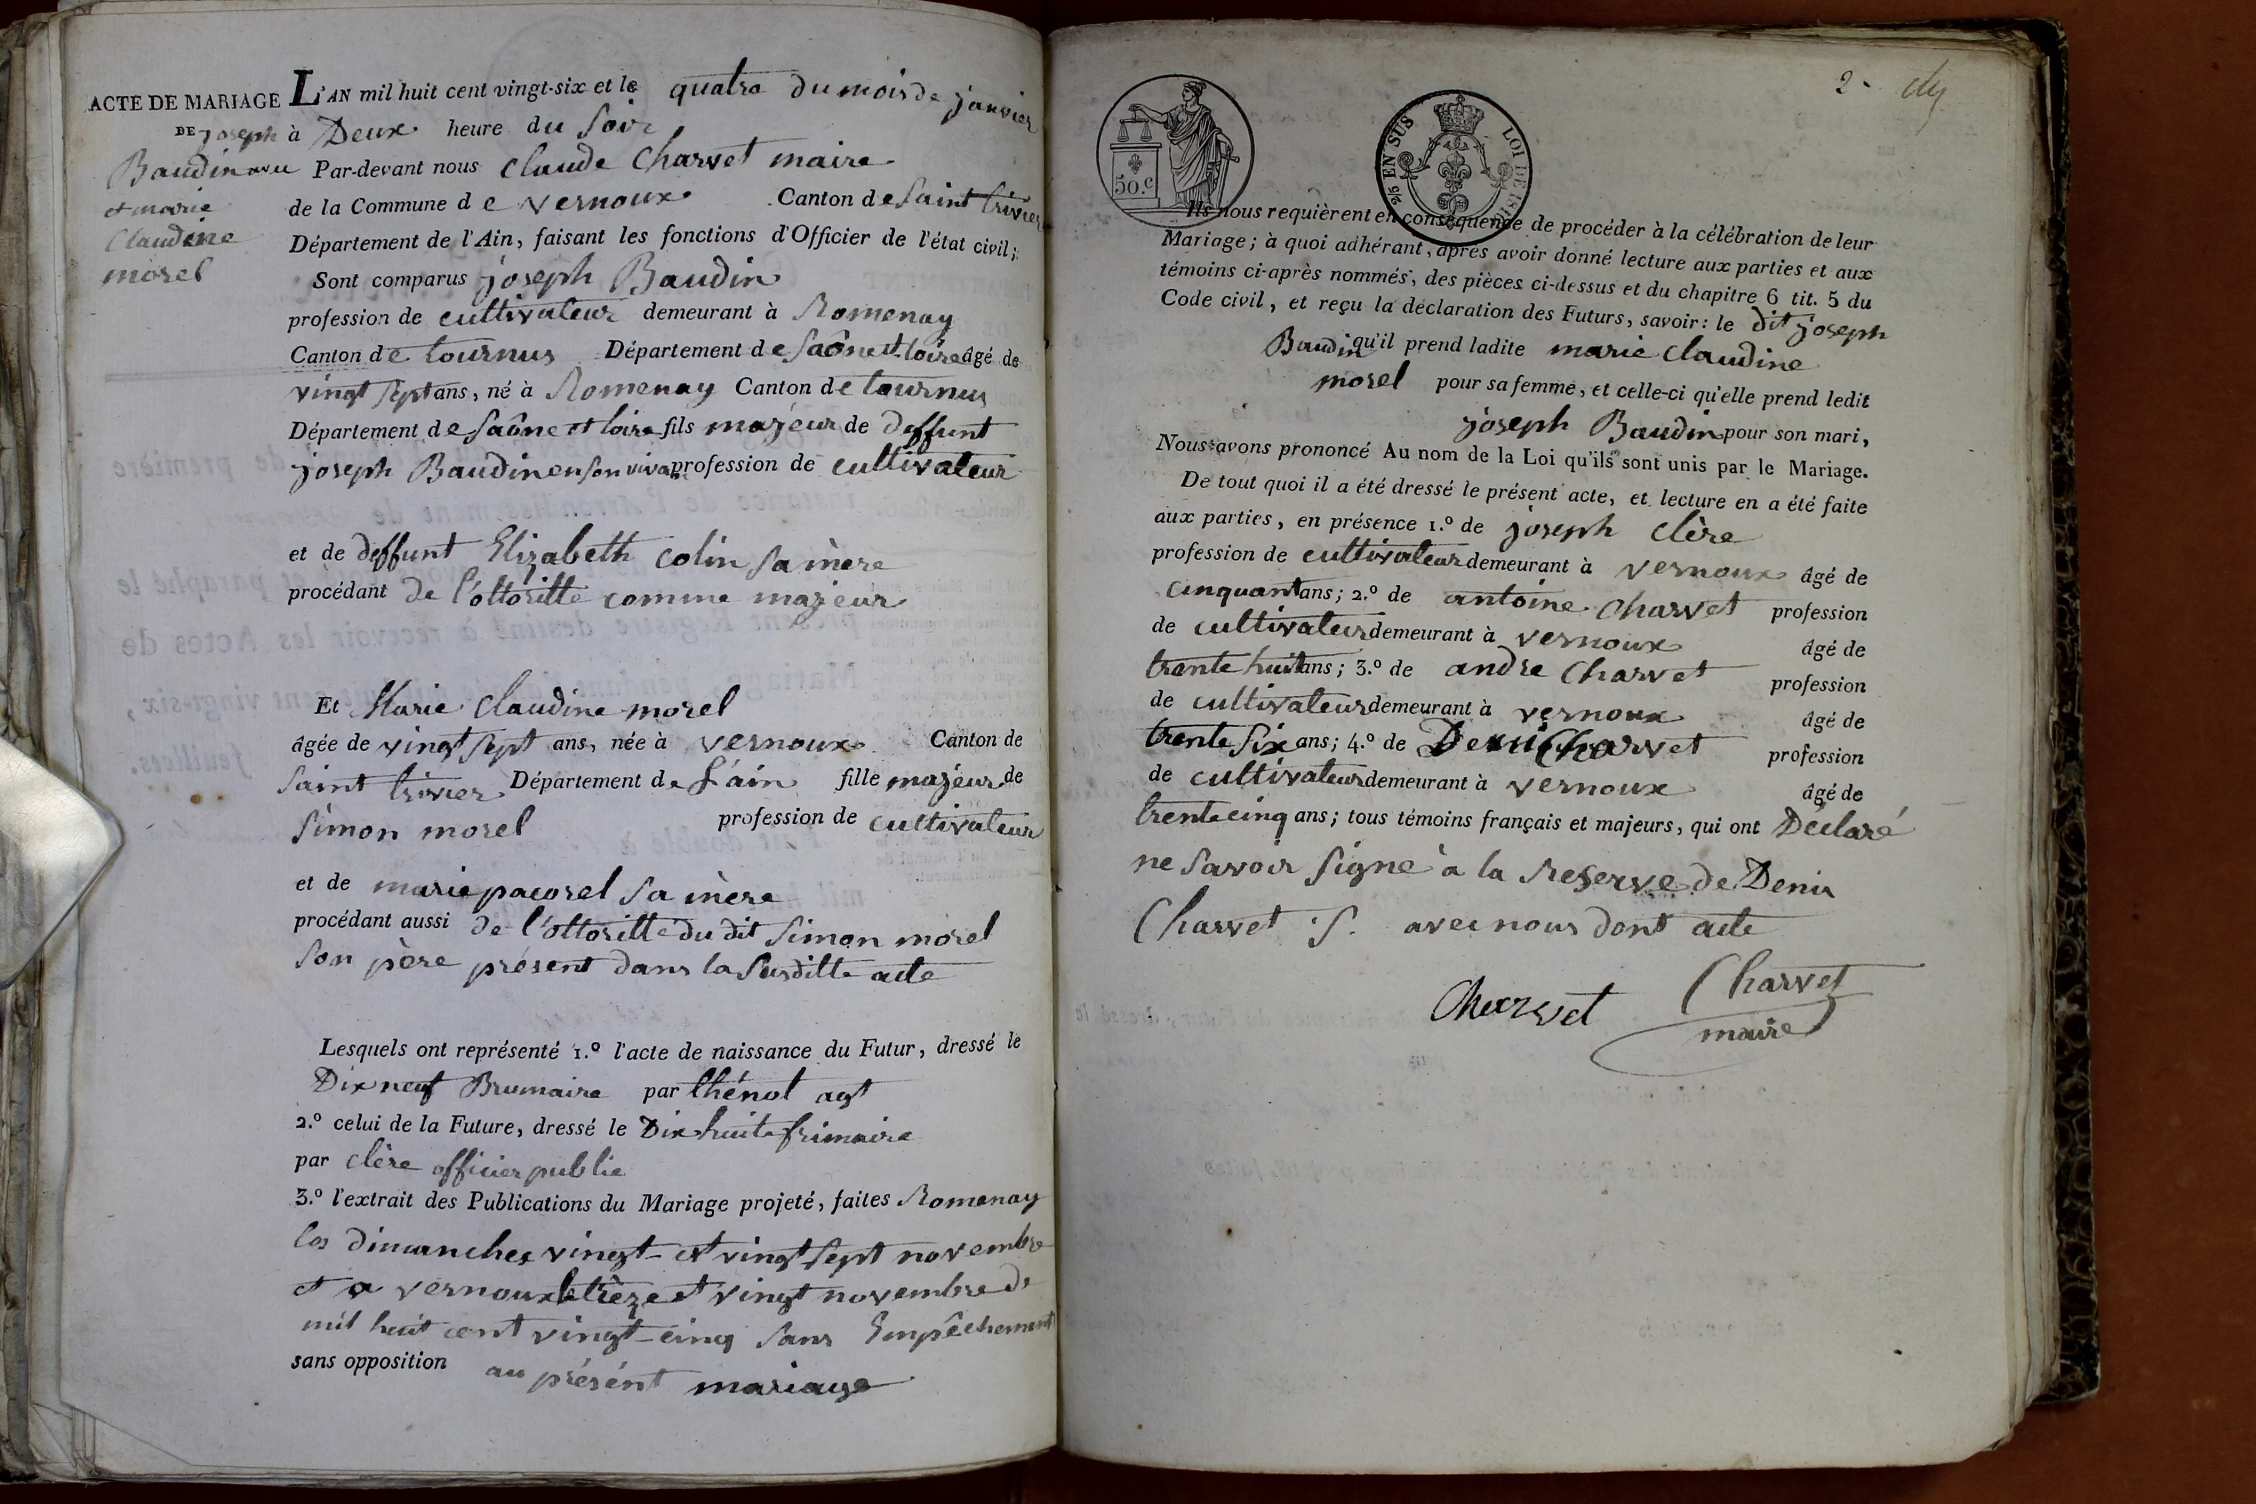 ACTE DE MARIAGE
DE joseph
Baudin avec
et marie
Claudine
morel
L'AN mil huit cent vingt-six et le quatre du mois de janvier
à Deux heure du soir
Par-devant nous Claude Charvet maire
de la Commune de vernoux Canton de saint trivier
Département de l'Ain, faisant les fonctions d'Officier de l'état civil;
Sont comparus joseph Baudin
profession de cultivateur demeurant à Romenay
Canton de tournus Département de saône et loire âgé de
vingt sept ans, né à Romenay Canton de tournus
Département de saône et loire fils majeur de deffunt
joseph Baudin en son vivant profession de cultivateur
et de deffunt Elizabeth colin sa mère
procédant de l'ottoritte comme majeur
Et Marie Claudine morel
âgée de vingt sept ans, née à vernoux Canton de
saint trivier Département de L'ain fille majeur de
simon morel profession de cultivateur
et de marie pacorel sa mère
procédant aussi de l'ottoritte du dit simon morel
son père présent dans la susditte acte
Lesquels ont représenté 1.º l'acte de naissance du Futur, dressé le
Dix neuf Brumaire par thénot agt
2.º celui de la Future, dressé le Dix huite frimaire
par clère officier public
3.º l'extrait des Publications du Mariage projeté, faites Romenay
les dimanches vingt et vingt sept novembre
et a vernoux le trèze et vingt novembre de
mil huit cent vingt-cinq sans Empêchement
sans opposition au présént mariage
2
50.C
2/5 EN SUS
LOI DE 1816
Ils nous requièrent en conséquence de procéder à la célébration de leur
Mariage; à quoi adhérant, après avoir donné lecture aux parties et aux
témoins ci-après nommés, des pièces ci-dessus et du chapitre 6 tit. 5 du
Code civil, et reçu la déclaration des Futurs, savoir: le dit joseph
Baudin qu'il prend ladite marie claudine
morel pour sa femme, et celle-ci qu'elle prend ledit
joseph Baudin pour son mari,
Nous avons prononcé Au nom de la Loi qu'ils sont unis par le Mariage.
De tout quoi il a été dressé le présent acte, et lecture en a été faite
aux parties, en présence 1.º de joseph clère
profession de cultivateur demeurant à vernoux âgé de
cinquant ans; 2.º de antoine Charvet profession
de cultivateur demeurant à vernoux âgé de
trente huit ans; 3.º de andre Charvet profession
de cultivateur demeurant à vernoux âgé de
trente six ans; 4.º de Deni Charvet profession
de cultivateur demeurant à vernoux âgé de
trente cinq ans; tous témoins français et majeurs, qui ont Déclaré
ne savoir signé à la reserve de Denis
Charvet .S. avec nous dont acte
Charvet Charvet
maire